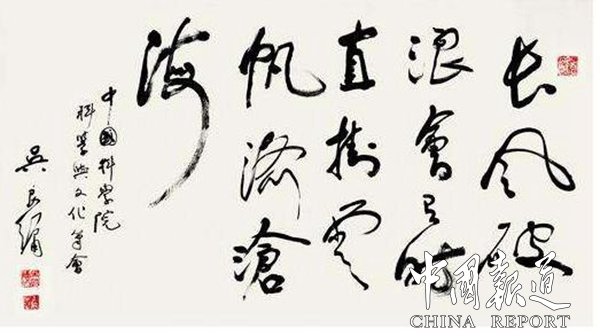 長風破
浪會有時
直掛雲
帆濟滄
海
中國科學院
科學與文化筆會
吳良鏞
中國報道
CHINA REPORT